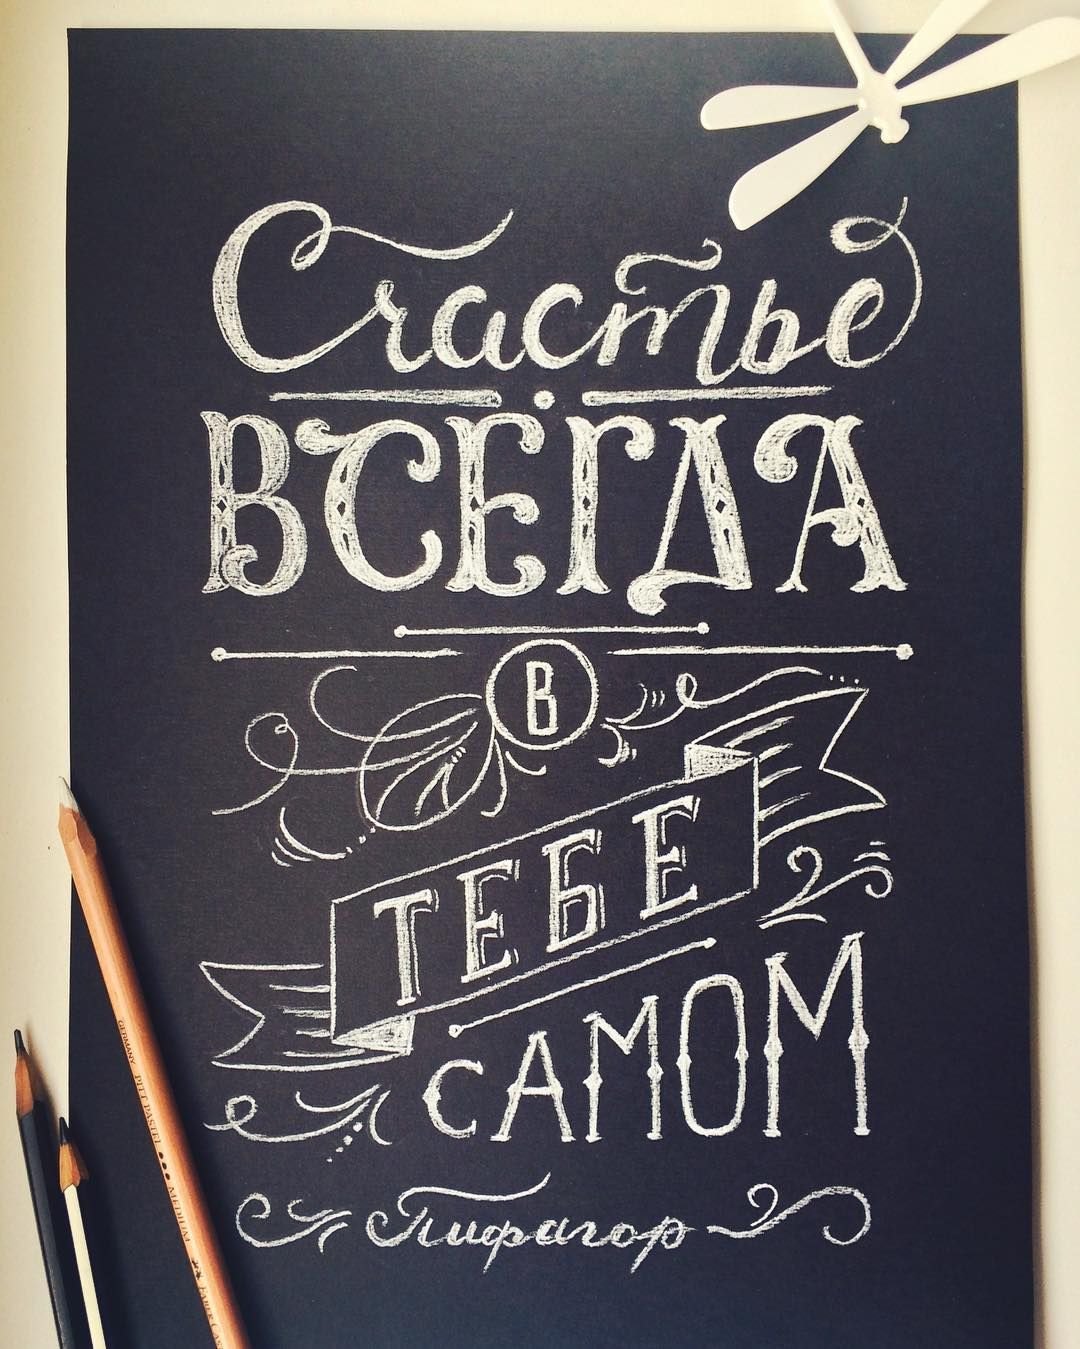 Счастье
ВСЕГДА
В
ТЕБЕ
САМОМ
Пифагор
GERMANY PITT PASTEL MEDIUM